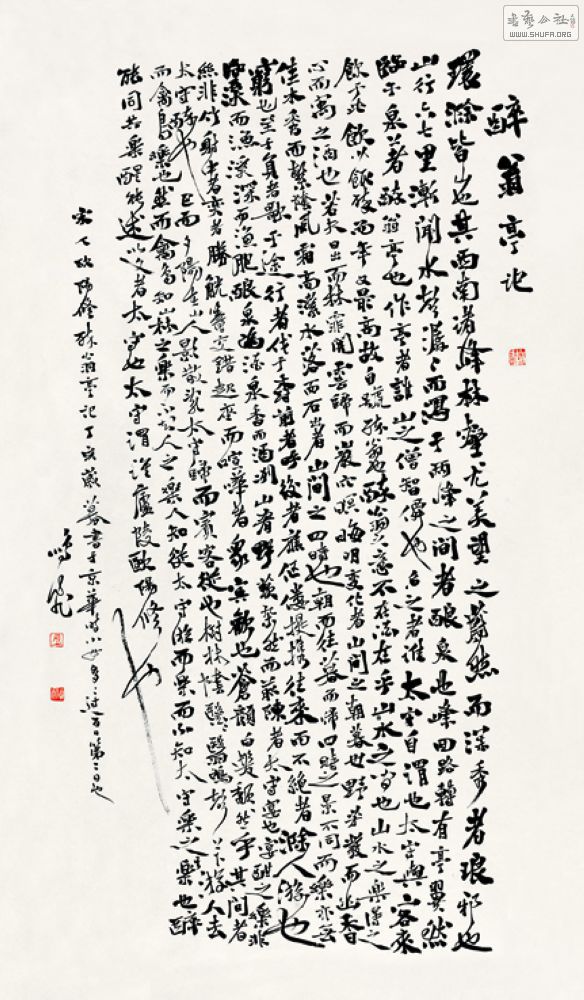 醉翁亭记
環滁皆山也其西南诸峰林壑尤美望之蔚然而深秀者琅邪也
山行六七里漸闻水聲潺々而瀉于两峰之间者酿泉也峰回路轉有亭翼然
臨于泉者醉翁亭也作亭者誰山之僧智僊也名之者谁太守自謂也太守與客来
飲于此飲少辄醉而年又最高故自號醉翁也醉翁之意不在酒在乎山水之间也山水之樂得之
心而寓之酒也若夫日出而林霏開雲歸而巖穴暝晦明變化者山间之朝暮也野芳發而幽香
佳木秀而繁陰風霜高潔水落而石出者山间之四时也朝而往暮而歸四时之景不同而樂亦无
窮也至于負者歌于途行者休于树前者呼後者應傴偻提攜往来而不絕者滁人游也
临溪而渔溪深而魚肥酿泉为酒泉香而酒洌山肴野蔌杂然而前陳者太守宴也宴酣之樂非
絲非竹射中者奕者勝觥籌交错起座而喧嘩者眾賓歡也蒼顏白髮颓然乎其间者
太守醉也已而夕陽在山人影散亂太守歸而賓客從也樹林陰翳鳴聲上下游人去
而禽鳥樂也然而禽鳥知山林之樂而不知人之樂人知從太守游而樂而不知太守樂之樂也醉
能同其樂醒能述以文者太守也太守謂谁廬陵歐陽修也
宋人欧陽修醉翁亭記丁亥歲暮書于京華時小女多多过百日第二日也
書藝公社
WWW.SHUFA.ORG